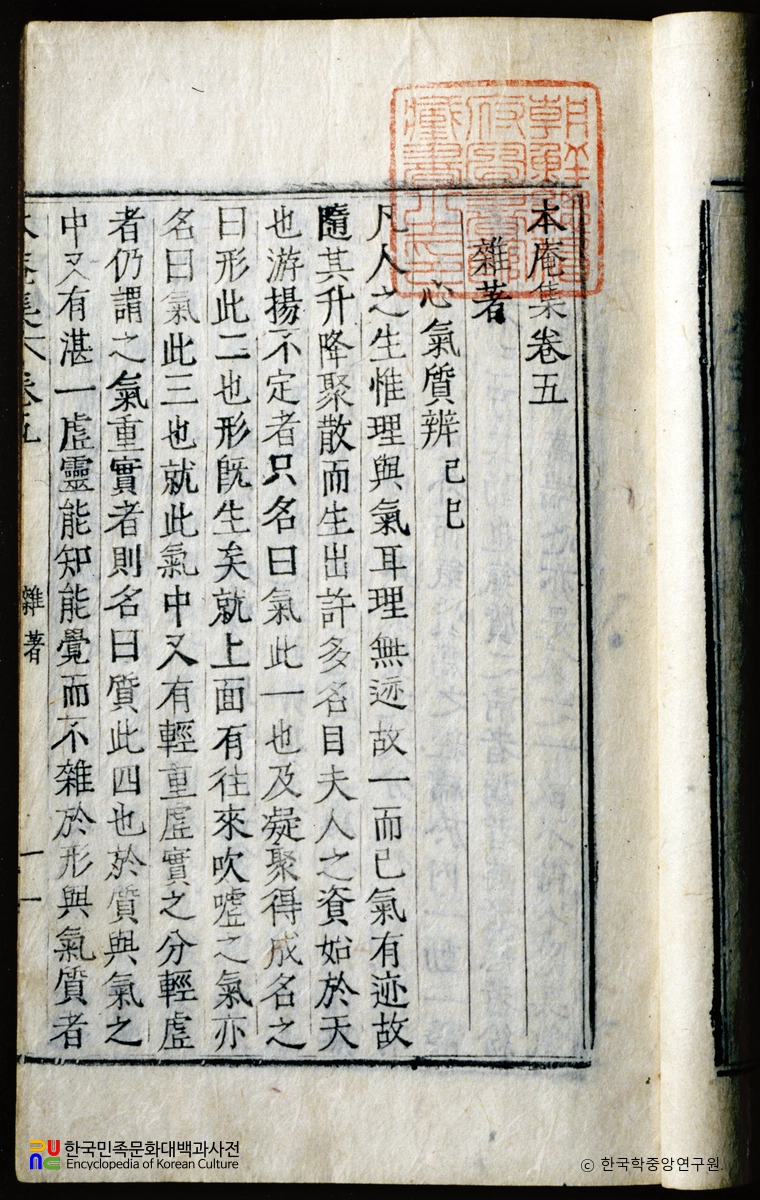 本庵集卷五
雜著
心氣質辨 己巳
凡人之生惟理與氣耳理無迹故一而已氣有迹故
隨其升降聚散而生出許多名目夫人之資始於天
也游揚不定者只名曰氣此一也及凝聚得成名之
曰形此二也形旣生矣就上面有往來吹噓之氣亦
名曰氣此三也就此氣中又有輕重虛實之分輕虛
者仍謂之氣重實者則名曰質此四也於質與氣之
中又有湛一虛靈能知能覺而不雜於形與氣質者
本庵集 卷五 雜著 一
朝鮮總督府圖書館藏書之印
한국민족문화대백과사전
Encyclopedia of Korean Culture
© 한국학중앙연구원